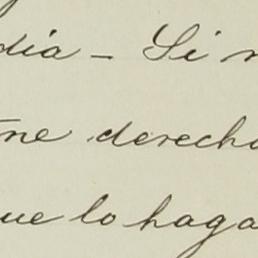 dia - Si n
ne derecho
ue lo haga